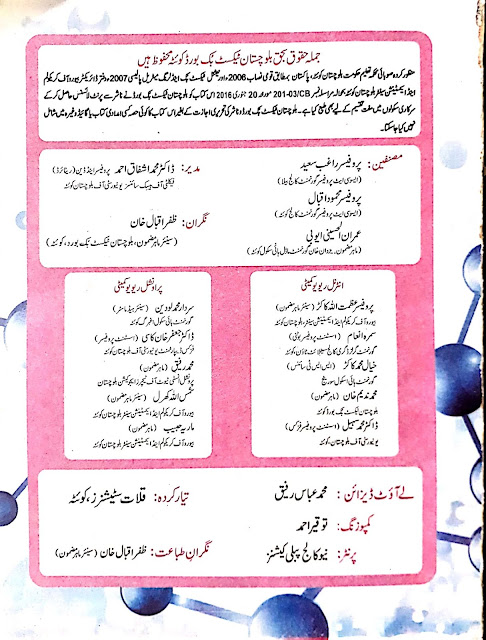 جملہ حقوق بحق بلوچستان ٹیکسٹ بک بورڈ کوئٹہ محفوظ ہیں
منظور کردہ صوبائی محکمہ تعلیم حکومت بلوچستان کوئٹہ، پاکستان بمطابق قومی نصاب 2006ء اور نیشنل ٹیکسٹ بک اینڈ لرننگ میٹریل پالیسی 2007ء دفتر ڈائریکٹر بیورو آف کریکولم
اینڈ ایکسٹینشن سینٹر بلوچستان کوئٹہ بحوالہ مراسلہ نمبر 201-03/CB مورخہ 20 جنوری 2016 اس کتاب کو بلوچستان ٹیکسٹ بک بورڈ نے ناشر سے پرنٹ لائسنس حاصل کر کے
سرکاری سکولوں میں مفت تقسیم کے لیے بھی طبع کیا ہے۔ بلوچستان ٹیکسٹ بک بورڈ یا ناشر کی تحریری اجازت کے بغیر اس کتاب کا کوئی حصہ کسی امدادی کتاب یا گائیڈ وغیرہ میں شامل
نہیں کیا جاسکتا۔
مصنفین: پروفیسر راغب سعید
(ایسوسی ایٹ پروفیسر گورنمنٹ کالج)
پروفیسر محمود اقبال
(ایسوسی ایٹ پروفیسر گورنمنٹ کالج کوئٹہ)
عمران الحسینی ایوبی
(ماہر مضمون۔ گورنمنٹ ماڈل ہائی سکول کوئٹہ)
مدیر: ڈاکٹر محمد اشفاق احمد پروفیسر اینڈ ڈین (ریٹائرڈ)
فیکلٹی آف بیسک سائنسز یونیورسٹی آف بلوچستان کوئٹہ
نگران: ظفر اقبال خان
(سینئر ماہر مضمون، بلوچستان ٹیکسٹ بک بورڈ، کوئٹہ)
انٹرنل ریویو کمیٹی
پروفیسر عظمت اللہ کاکڑ (سینئر ماہر مضمون)
بیورو آف کریکولم اینڈ ایکسٹینشن سینٹر، بلوچستان کوئٹہ
(اسسٹنٹ پروفیسر)
گورنمنٹ گرلز ڈگری کالج سیٹلائٹ ٹاؤن کوئٹہ
خیال محمد کاکڑ (ایس ایس ٹی سائنس)
گورنمنٹ ہائی سکول
محمد ندیم خان (ماہر مضمون)
بلوچستان ٹیکسٹ بک بورڈ کوئٹہ
ڈاکٹر محمد سہیل (اسسٹنٹ پروفیسر فزکس)
یونیورسٹی آف بلوچستان، کوئٹہ
پراونشل ریویو کمیٹی
سردار محمد لودین (سینئر ہیڈ ماسٹر)
گورنمنٹ ہائی سکول
ڈاکٹر جعفر خان کاسی (اسسٹنٹ پروفیسر)
فزکس ڈیپارٹمنٹ یونیورسٹی آف بلوچستان کوئٹہ
محمد رفیق (ماہر مضمون)
پرونشل انسٹی ٹیوٹ آف ٹیچرز ایجوکیشن بلوچستان
شمس اللہ کھرل (سینئر ماہر مضمون)
بیورو آف کریکولم اینڈ ایکسٹینشن سینٹر بلوچستان کوئٹہ
ماریہ حبیب (ماہر مضمون)
بیورو آف کریکولم اینڈ ایکسٹینشن سینٹر بلوچستان کوئٹہ
لے آؤٹ ڈیزائن: محمد عباس رفیق
تیار کردہ: قلات سٹیشنرز، کوئٹہ
کمپوزنگ: توقیر احمد
پرنٹر: نیو کالج پبلی کیشنز
نگران طباعت: ظفر اقبال خان (سینئر ماہر مضمون)